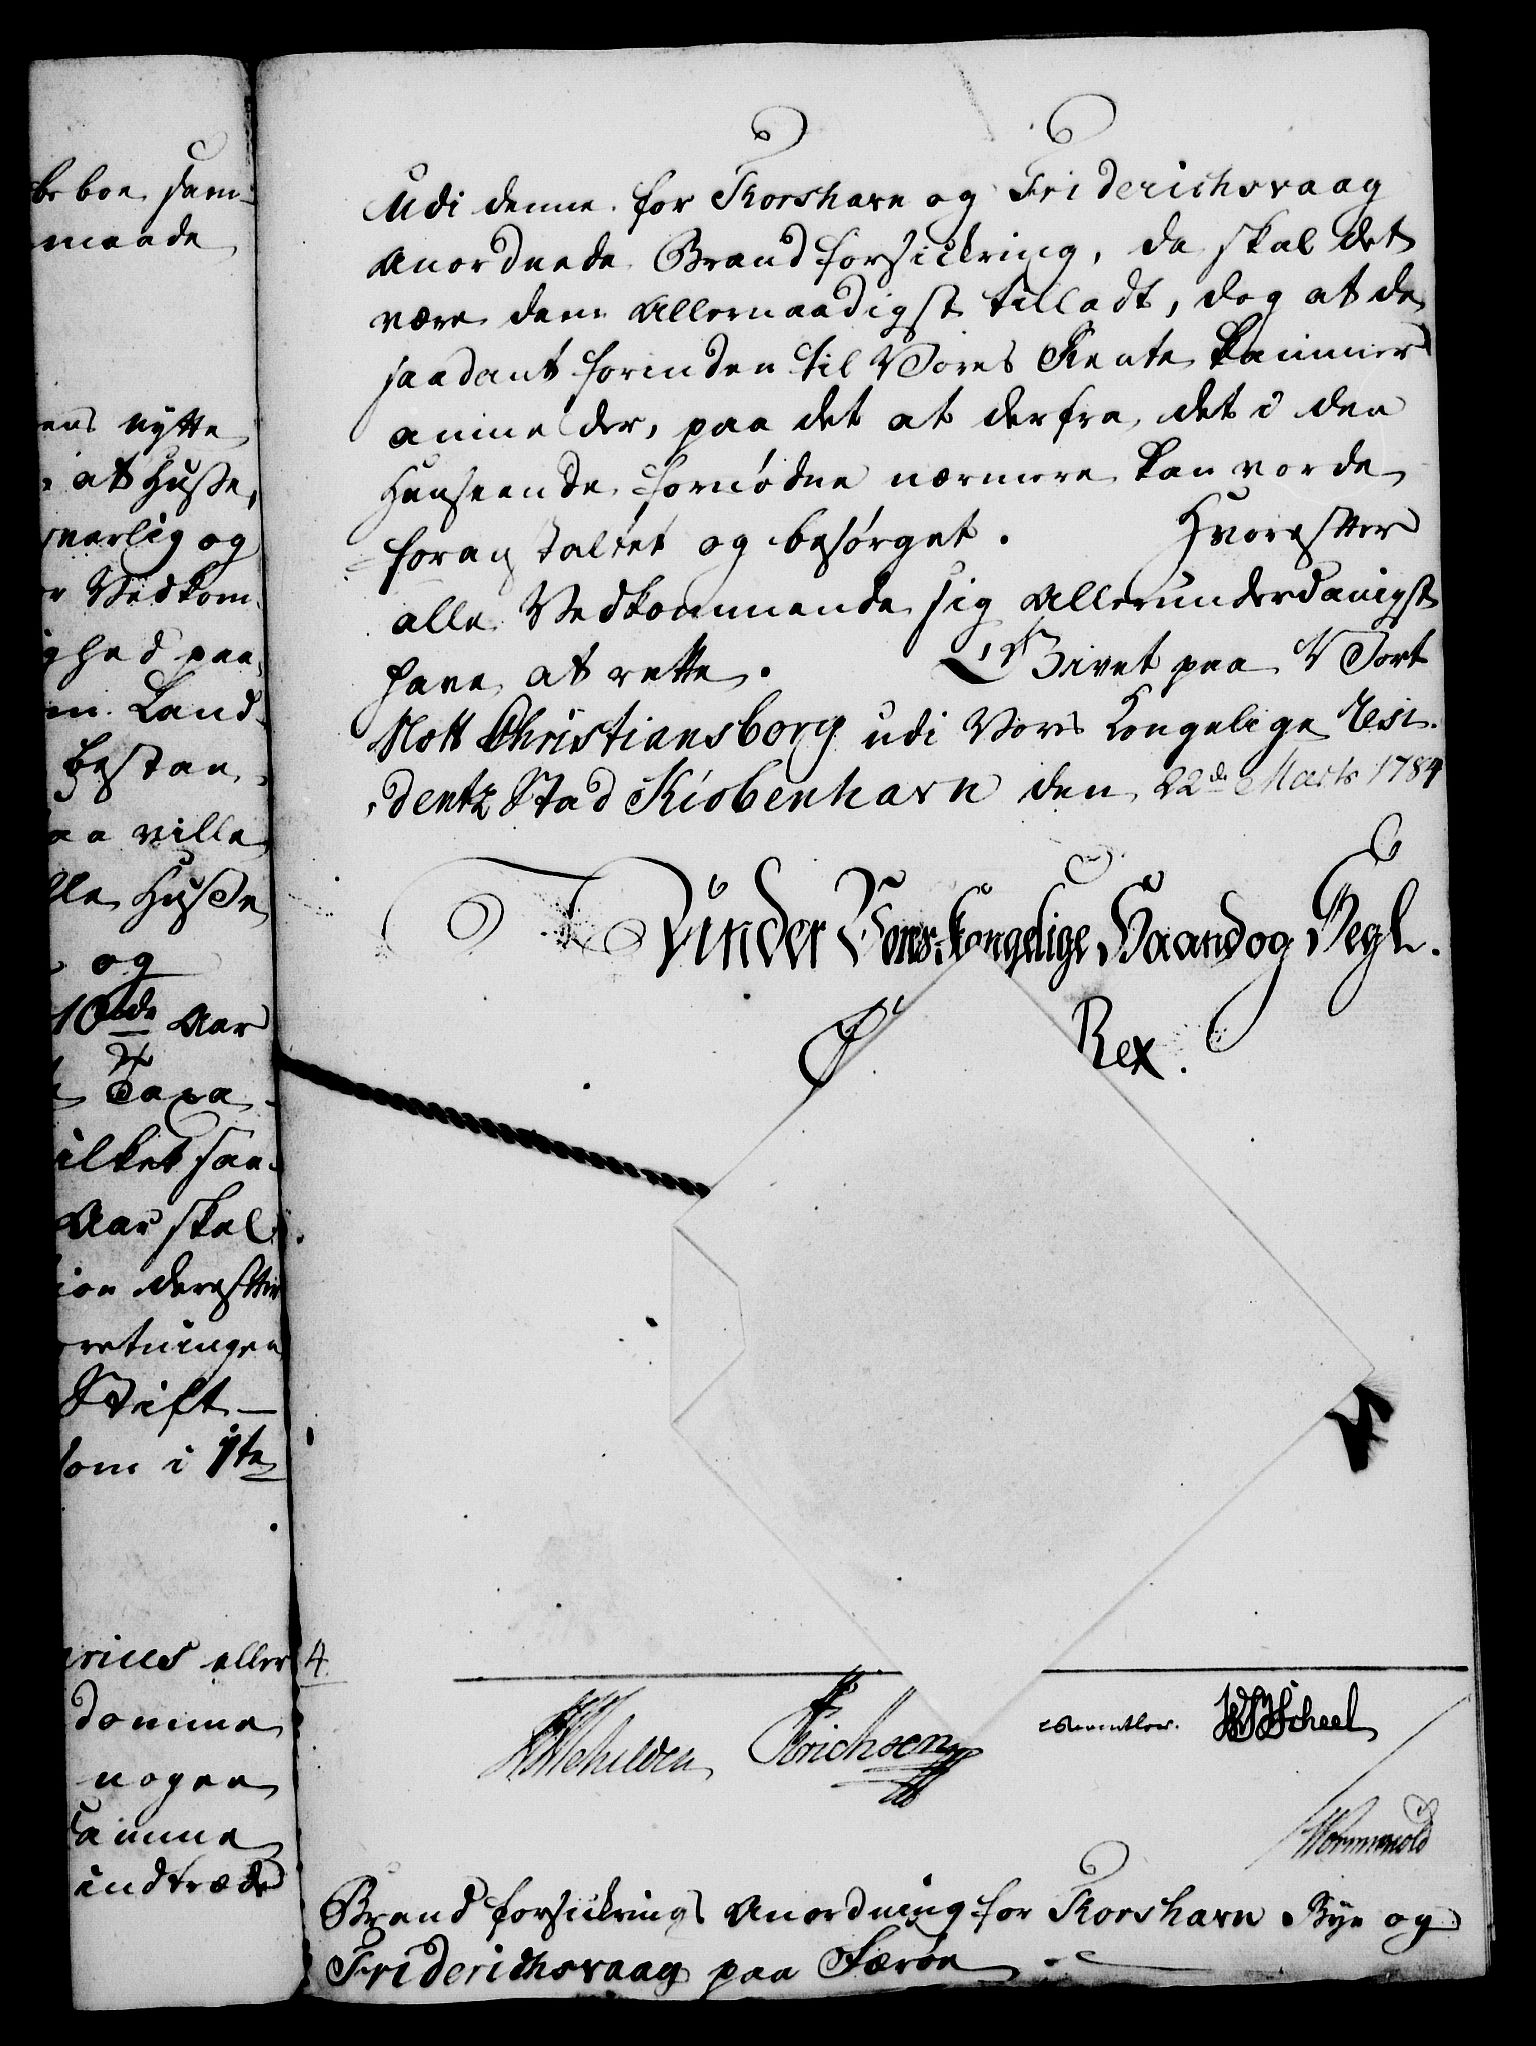 be boe sam-
maade
ens nytte
at Huse,
svarlig og
r Vedkom-
ghed paa
m Land-
bestan-
aa ville
lle Huse
og
10de Aar
Taxa-
ilket saa-
Aar skal
ion derefter
retningen
Stift-
som i 1te
arius eller
domme
nogen
samme
indtræde
Udi denne for Thorshavn og Friderichsvaag
Anordnede Brandforsickring, da skal det
være dem Allernaadigst tilladt, dog at de
saadant forinden til Vores Rente Kammer
anmelder, paa det at derfra det i den
Henseende fornødne nærmere kan vorde
foranstaltet og besørget. Hvorefter
alle Vedkommende sig Allerunderdanigst
have at rette. Givet paa Vort
Slott Christiansborg udi Vores Kongelige Resi-
dentz Stad Kiøbenhavn den 22de Marts 1784
Under Vores Kongelige Haand og Segl.
C Rex.
4
Schilden Erichsen Reventlow. Scheel
Wormskiold
Brandforsickrings Anordning for Thorshavn Bye og
Friderichsvaag paa Færöe